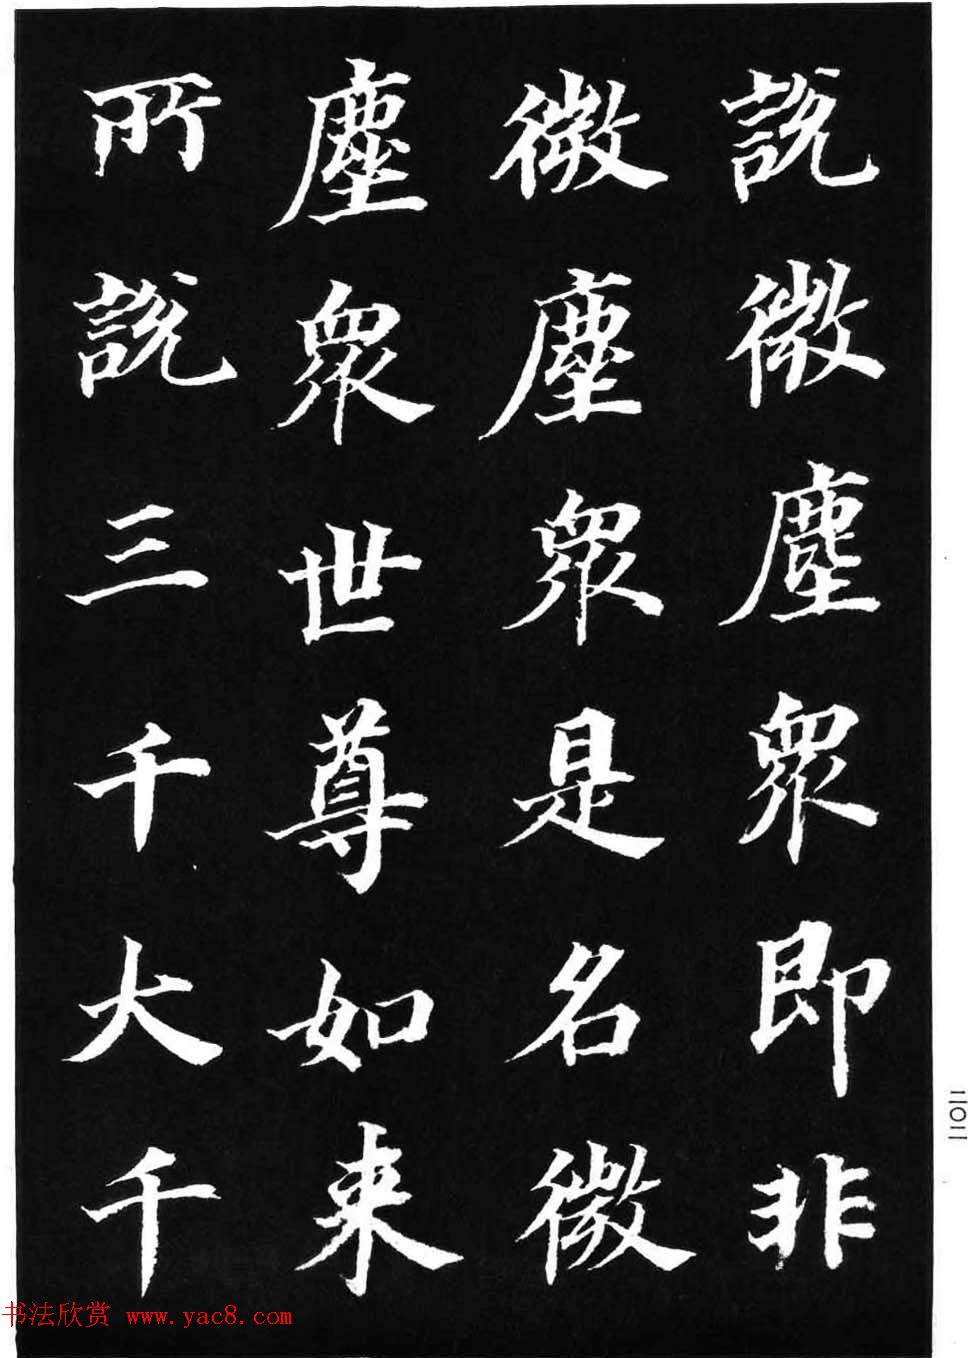 說微塵衆即非
微塵衆是名微
塵衆世尊如来
所說三千大千
二〇二
书法欣赏 www.yac8.com